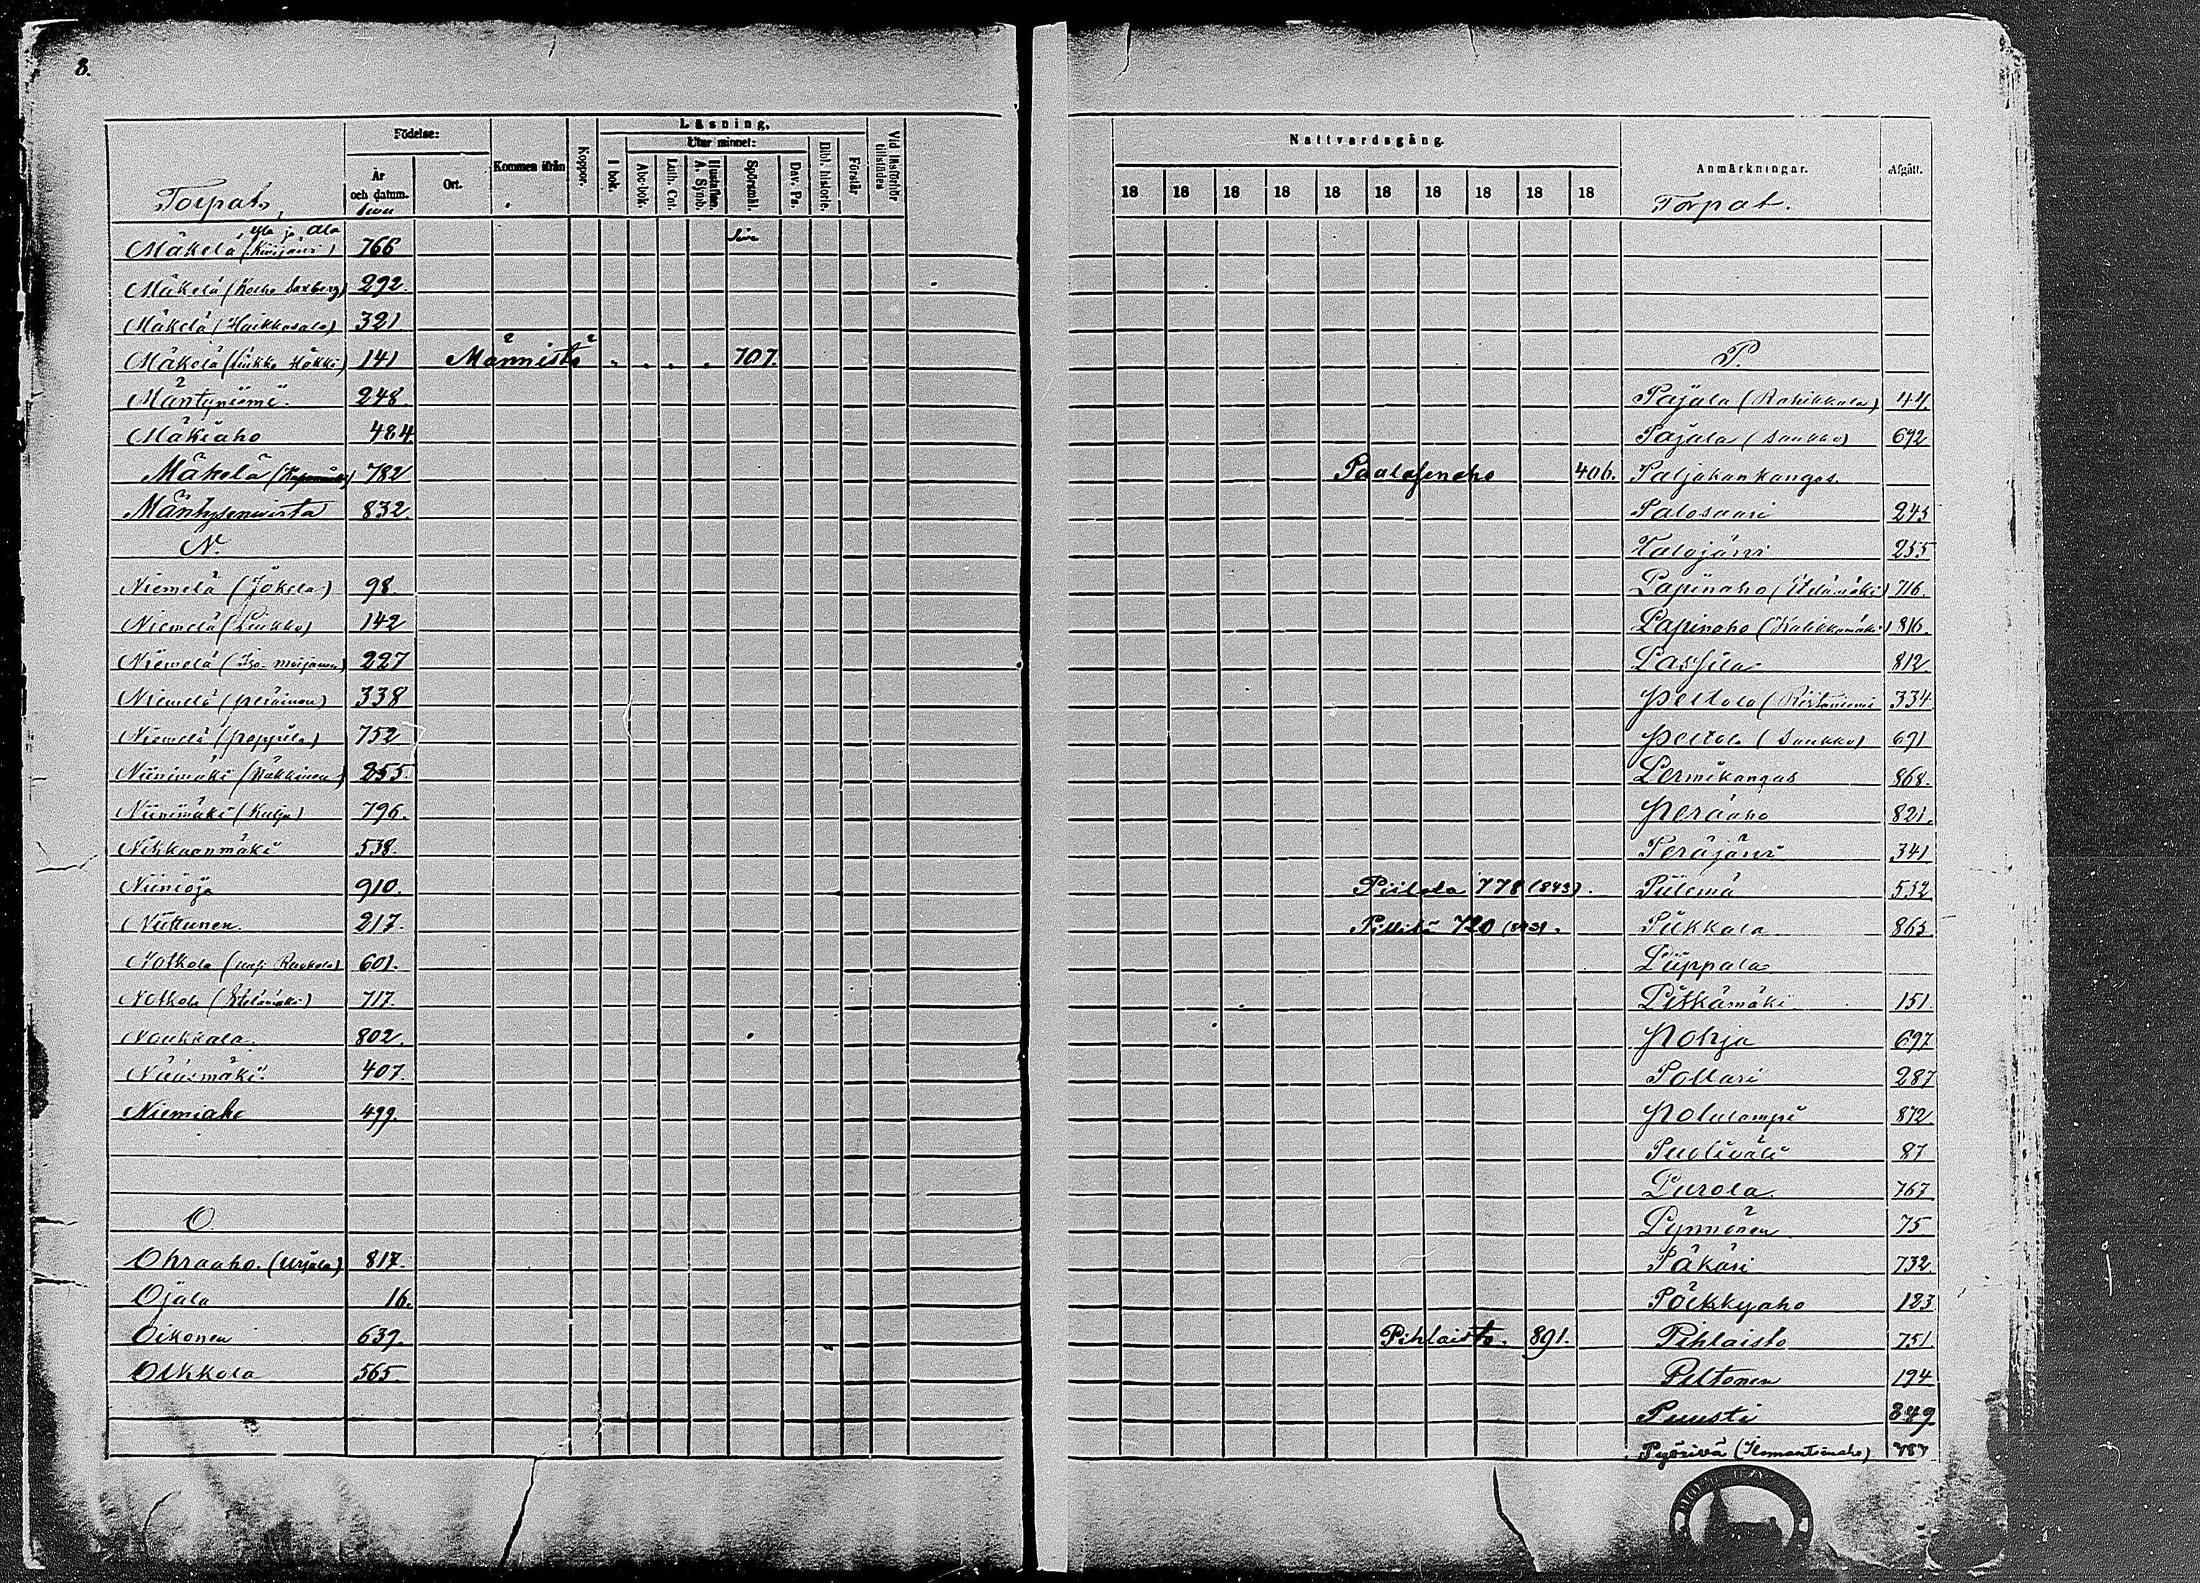 8.
Födelse:
År och datum.
Ort.
Kommen ifrån
Koppor.
Läsning.
I bok.
Utur minnet:
Abc-bok.
Luth. Cat.
Hustaflan A. Symb.
Spörsmål.
Dav. Ps.
Bibl. historie.
Förstår.
Vid läsförhör tillstädes
Torpat,
Sivu
Sivu
Mäkelä (Yla ja Ala Kivijärvi) 766
Mäkelä (Kolhe Saxberg) 292.
Mäkelä (Haikkosalo) 321
Mäkelä (Liukko Häkki) 141 Männistö 707.
Mäntyniemi. 248.
Mäkiaho 484
Mäkelä 782
Mäntysenvirta 832.
N.
Niemelä (Jokela) 98.
Niemelä (Liukko) 142
Niemelä (Iso-Moijanen) 227
Niemelä (Peräinen) 338
Niemelä (Poppila) 752
Niinimäki (Häkkinen) 255.
Niinimäki (Kulju) 796.
Nihkaanmäki 538.
Niinioja 910.
Niittunen. 217.
Notkola 601.
Notkola (Etelämäki) 717.
Noukkala. 802.
407.
Niemiaho 499.
O
Ohraaho. (Urjala) 817.
Ojala 16.
Oikonen 639.
Oikkola 565.
Nattvardsgång.
18 18 18 18 18 18 18 18 18 18
Anmärkningar.
Afgått.
Torpat.
P.
Pajala (Rahikkala) 44.
Pajala (Saukko) 692
406. Paljakankangas.
Palosaari 245
Palojärvi 255
Papinaho (Etelämäki) 716.
Papinaho (Kalikkamäki) 816.
Passila 812
Peltola (Ristaniemi 334
Peltola (Saukko) 691
Permikangas 868.
Peräaho 821.
Peräjärvi 341
Piilola 778 (843). Piilemä 532
Pillitä 720 Piikkala 865
Piippala
Pitkämäki 151.
Pohja 697
Pollari 287
Polulampi 872
Puoliväli 87
Purola 767
Pynnönen 75.
Päkäri 732.
Pölkkyaho 123
Pihlaisto. 891. Pihlaisto 751.
Peltonen 194
Puusti 849
Pyörivä (Ilomantsinaho) 787